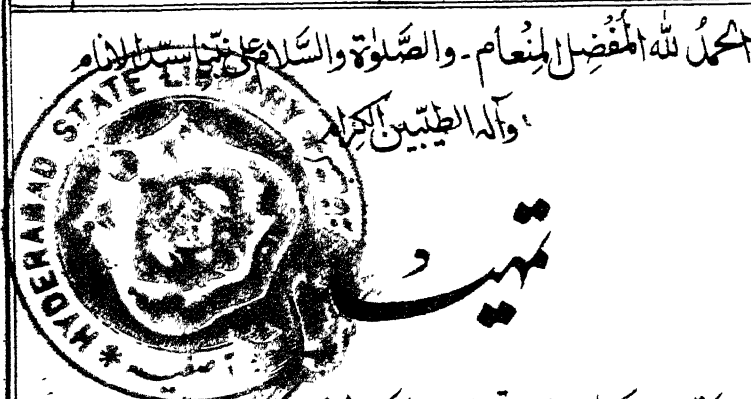 الحمدُ لله المُفْضِل المِنْعام۔ والصَّلوٰة والسَّلام علىٰ نبيّنا سيّد الانام
وآلہ الطيّبين الكِرام
HYDERABAD STATE LIBRARY
آصفیہ
تمہید